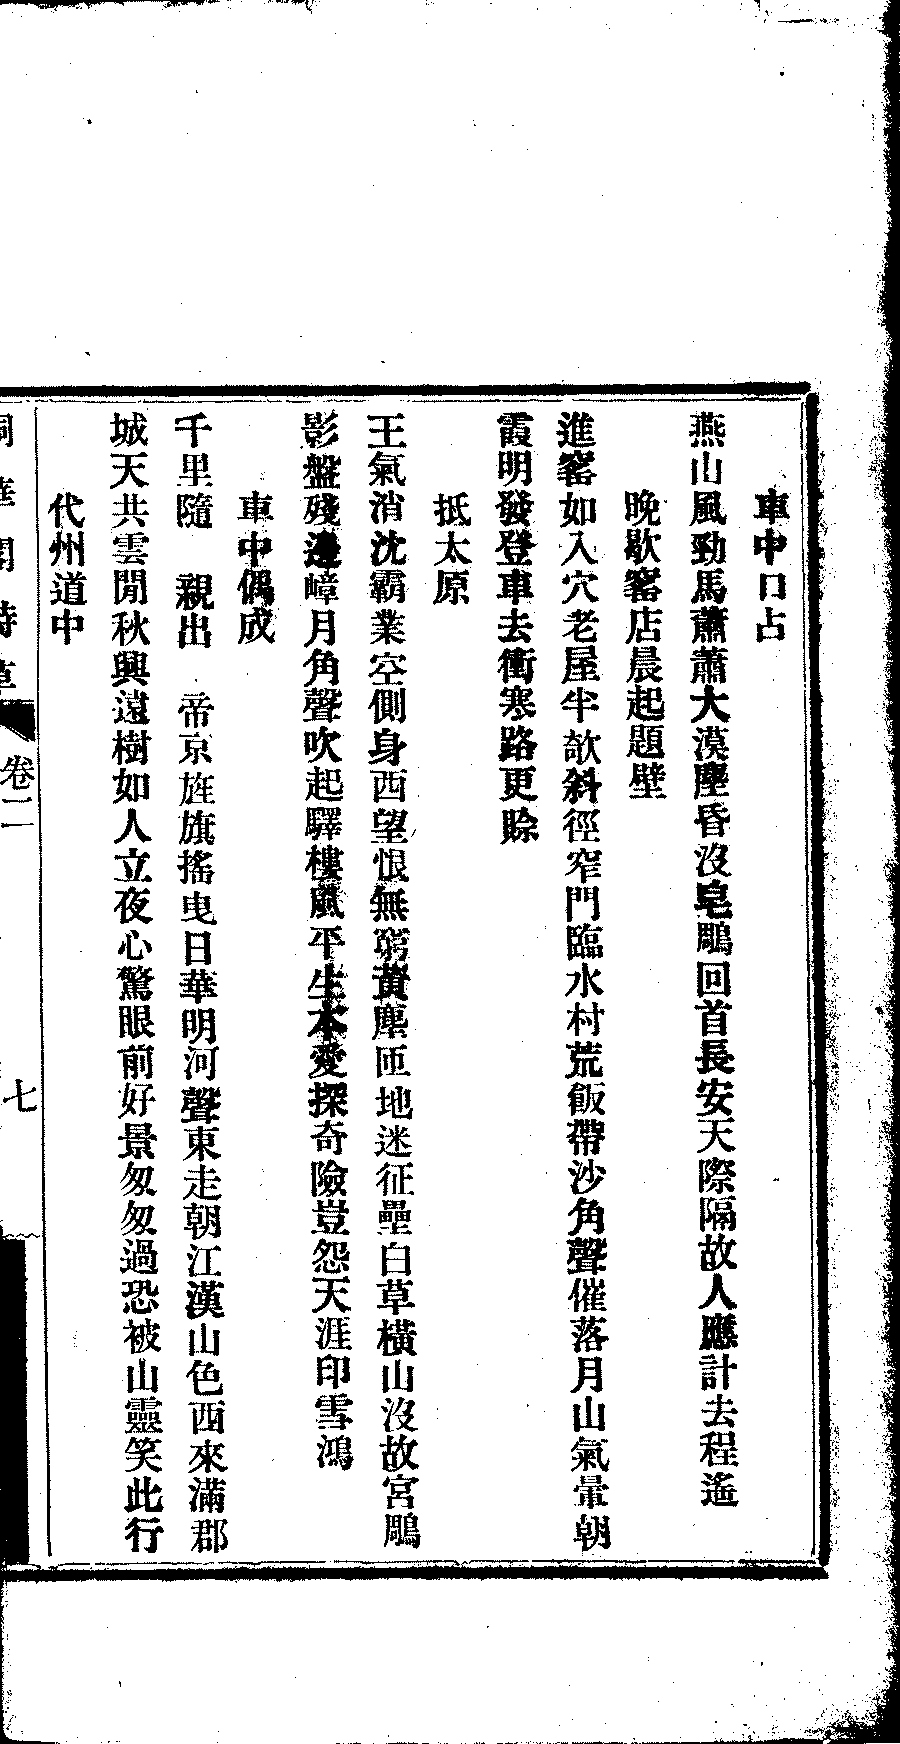 車中口占
燕山風勁馬蕭蕭大漠塵昏沒皂鵰回首長安天際隔故人應計去程遙
晚歇窰店晨起題壁
進窰如入穴老屋半欹斜徑窄門臨水村荒飯帶沙角聲催落月山氣暈朝
霞明發登車去衝寒路更賒
抵太原
王氣消沈霸業空側身西望恨無窮黃塵匝地迷征壘白草橫山沒故宮鵰
影盤殘邊嶂月角聲吹起驛樓風平生本愛探奇險豈怨天涯印雪鴻
車中偶成
千里隨　親出　帝京旌旗搖曳日華明河聲東走朝江漢山色西來滿郡
城天共雲閒秋興遠樹如人立夜心驚眼前好景匆匆過恐被山靈笑此行
代州道中
卷二
七